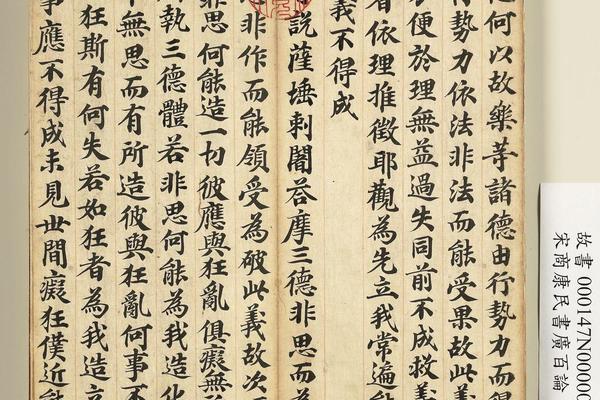 何以故樂等諸德由行勢力而得
勢力依法非法而能受果故此義
便於理無益過失同前不成救義
依理推徵耶觀為先立我常遍能
義不得成
說薩埵剌闍荅摩三德非思而為
非作而能領受為破此義故次
非思何能造一切彼應與狂亂俱癡無
執三德體若非思何能為我造化
無思而有所造彼與狂亂何事不
狂斯有何失若如狂者為我造立
事應不得成未見世間癡狂僕近能
故書 000147N00000
宋商康民書廣百論